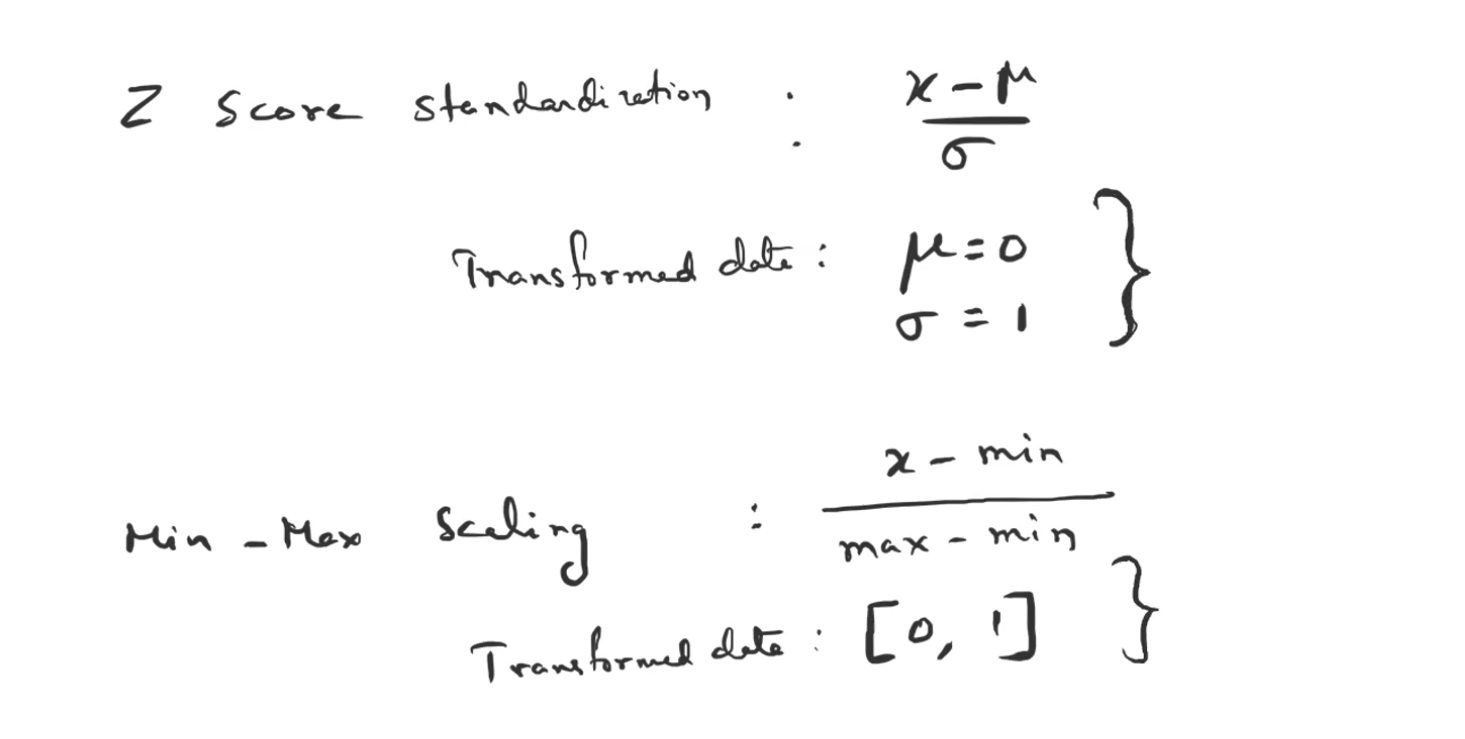 Z Score standardization : x - μ / σ
Transformed data : μ = 0
σ = 1
Min - Max Scaling : x - min / max - min
Transformed data : [0, 1]